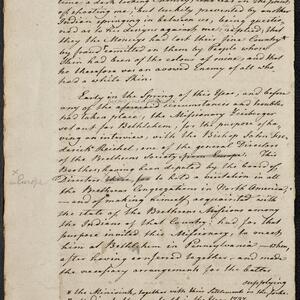 time, a dark looking
of shooting me, but luckily prevented by another
Indian springing in between us; being questio-
ned as to his designs against me; replied, that
they the Monseys had lost their fine Country
by fraud committed on them by People whose
Skin had been of the colour of mine; and that
he therefore was an avowed Enemy of all who
had a white Skin.
Early in the Spring of this Year, and before
any of the aforesaid circumstances and troubles
had taken place; the Missionary Zeisberger
set out for Bethlehem, for the purpose of ha-
ving an interview, with the Bishop John Fre-
derick Reichel, one of the general Directors
of the Brethrens Society from Europe. This
Brother, having been deputed by the board of
Directors to hold a visitation in all
the Brethrens Congregations in North America;
x
in Europe
— and of making himself, acquainted with
the state of the Brethrens Missions among
the Indians of that Country; had for that
purpose invited this Missionary, to meet
him at Bethlehem in Pennsylvania — when,
after having conferred together, and made
the necessary arrangements for the better
supplying
* the Minisink, together with this Settlement in the